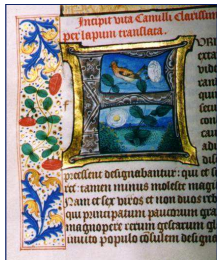 Incipit vita Camilli Clarissim
per lapum translata.
exta
vido
ran
qui
secu
con
cai
dar
pressent designabantur: qui et si
cet tamen minus moleste mag
Nam et sex viros et non duos re
qui principatum paucorum gra
magnopere rerum gestarum gl
inuito populo cōsulem desig